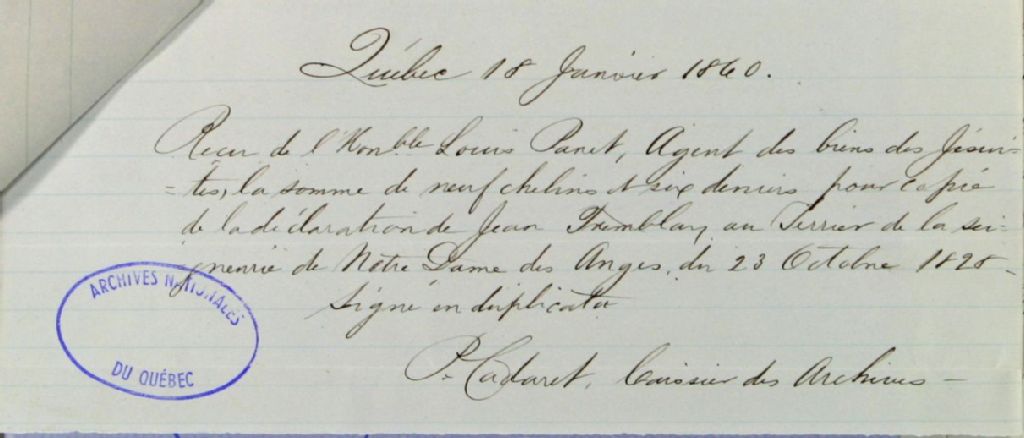 Québec 18 Janvier 1860.
Recu de l'Honble Louis Panet, Agent des biens des Jésui-
=tes, la somme de neuf chelins et six deniers pour copie
de la déclaration de Jean Tremblay au Terrier de la sei-
gneurie de Notre Dame des Anges, du 23 Octobre 1828 -
Signé en duplicata
P. Cadaret, Caissier des Archives -
ARCHIVES NATIONALES
DU QUÉBEC